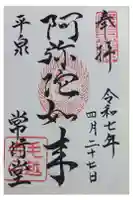 奉拝
令和七年
四月二十七日
阿弥陀如来
平泉
常行堂
毛越